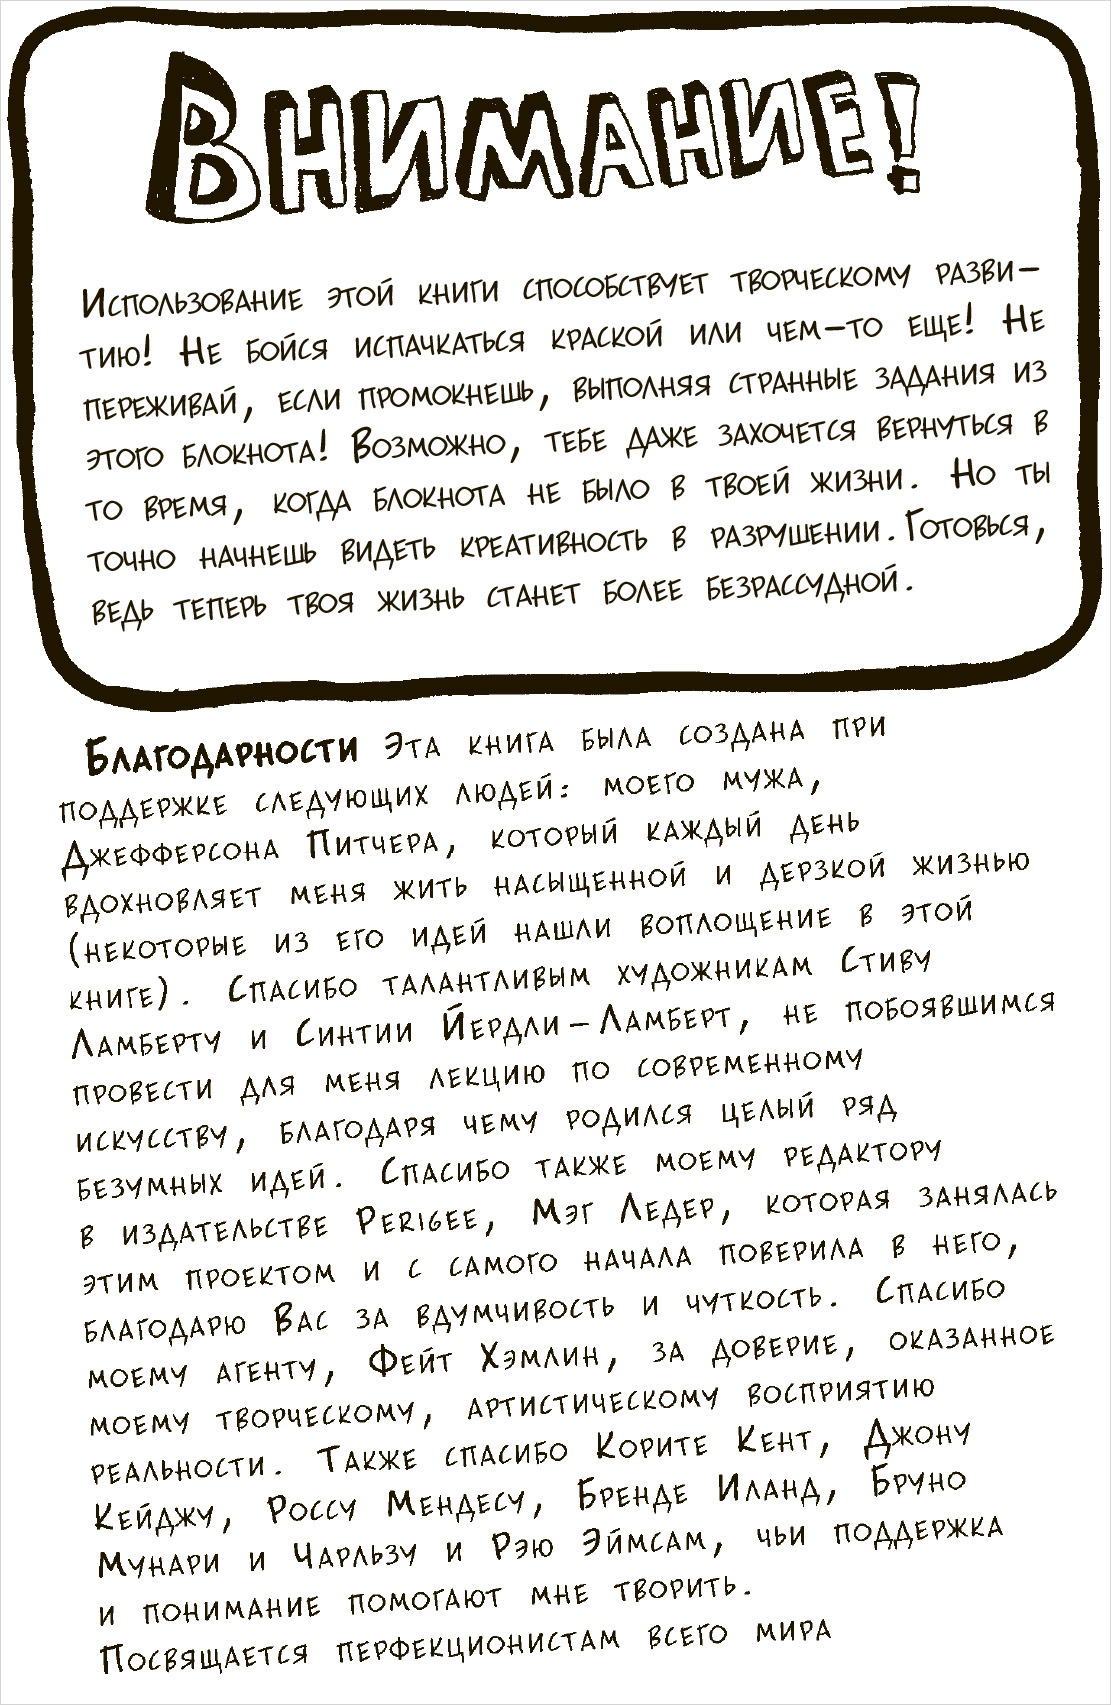 Внимание!
Использование этой книги способствует творческому разви-
тию! Не бойся испачкаться краской или чем-то еще! Не
переживай, если промокнешь, выполняя странные задания из
этого блокнота! Возможно, тебе даже захочется вернуться в
то время, когда блокнота не было в твоей жизни. Но ты
точно начнешь видеть креативность в разрушении. Готовься,
ведь теперь твоя жизнь станет более безрассудной.
Благодарности Эта книга была создана при
поддержке следующих людей: моего мужа,
Джефферсона Питчера, который каждый день
вдохновляет меня жить насыщенной и дерзкой жизнью
(некоторые из его идей нашли воплощение в этой
книге). Спасибо талантливым художникам Стиву
Ламберту и Синтии Йердли-Ламберт, не побоявшимся
провести для меня лекцию по современному
искусству, благодаря чему родился целый ряд
безумных идей. Спасибо также моему редактору
в издательстве Perigee, Мэг Ледер, которая занялась
этим проектом и с самого начала поверила в него,
благодарю Вас за вдумчивость и чуткость. Спасибо
моему агенту, Фейт Хэмлин, за доверие, оказанное
моему творческому, артистическому восприятию
реальности. Также спасибо Корите Кент, Джону
Кейджу, Россу Мендесу, Бренде Иланд, Бруно
Мунари и Чарльзу и Рэю Эймсам, чьи поддержка
и понимание помогают мне творить.
Посвящается перфекционистам всего мира